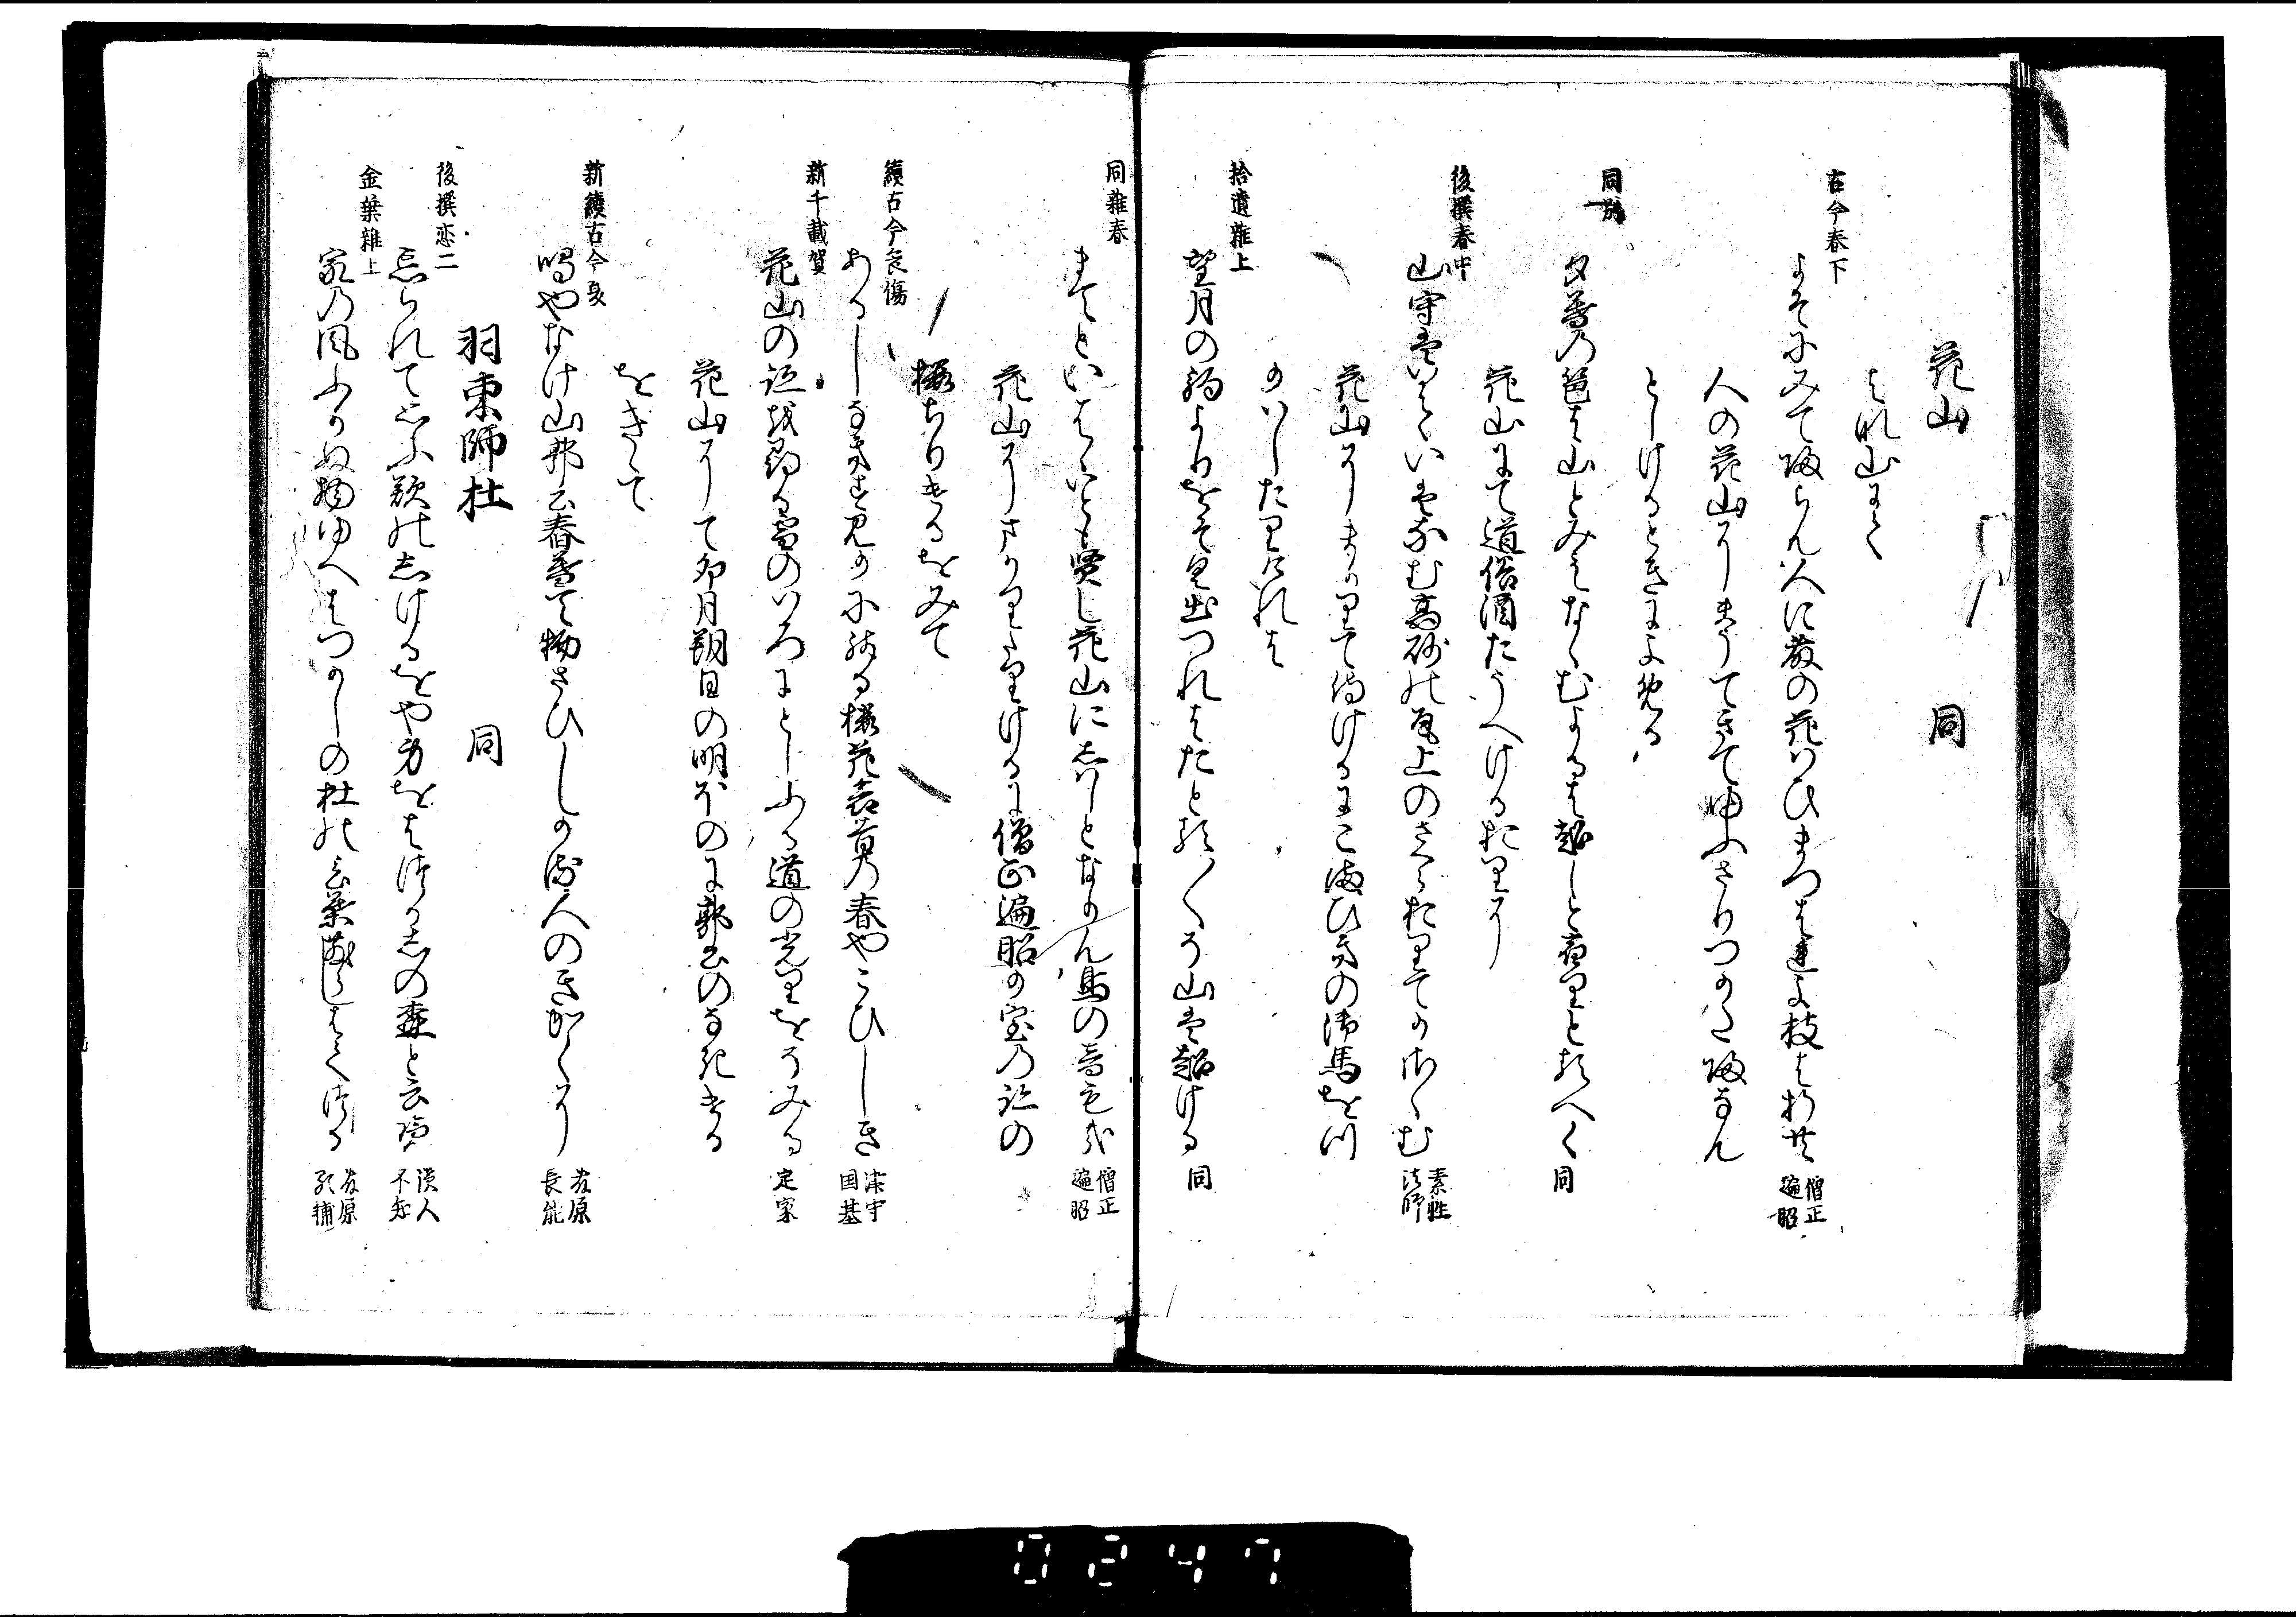 花山　同
はれ山にて
古今春下
よそにみて帰らん人に藤の花はひまつはれよ枝は折共　僧正遍昭
人の花山にまうてきて夕さりつかた帰なん
としけるときによめる
同別
夕暮乃籬は山とみえなゝむよるは越しと宿りとるへく　同
花山にて道俗酒たうへけるおりに
後撰春中
山守はいはゝいはなむ高砂の尾上のさくら折てかさゝむ　素性法師
花山にまかりて侍けるにこまひきの御馬を
つかはしたりけれは
拾遺雑上
望月の駒よりをそく出つれはたとる／＼そ山は越ける　同
同雑春
まてといはゝいとも賢し花山にしはしとなかん鳥の音も哉　僧正遍昭
花山にまかりたりけるに僧正遍昭の室の跡の
桜ちりけるをみて
續古今哀傷
あるしなきすみかに残る桜花哀昔の春やこひしき　津守国基
新千載賀
花山の跡を尋る雪のいろにとしふる道の光りをそみる　定家
花山にて卯月朔日の明ほのに郭公のなきける
をきゝて
新續古今夏
鳴やなけ山郭公春暮て物さひしかる人のきかくに　藤原長能
羽束師杜　同
後撰恋二
忘られて思ふ歎の志けるをや身をはつかしの森と云覧　讀人不知
金葉雑上
家乃風ふかぬ物ゆへはつかしの杜の言葉散しはてつる　藤原顕輔
0247